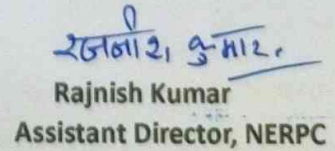 रजनीश कुमार.
Rajnish Kumar
Assistant Director, NERPC